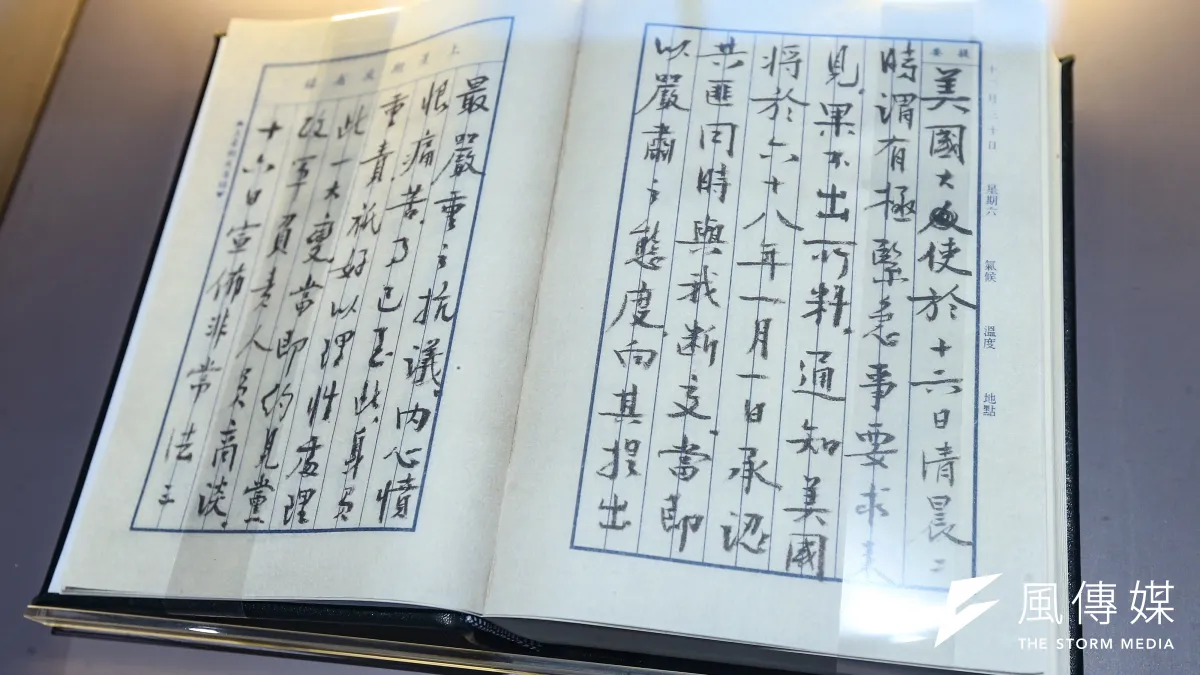 提要
星期六 氣候 溫度 地點
美國大使於十六日清晨二
時謂有極緊急事要求來
見，果不出所料，通知美國
將於六十八年一月一日承認
共匪同時與我断交，當即
以嚴肅之態度，向其提出
上星期反省錄
最嚴重之抗議，內心憤
恨痛苦，乃已至此，身負
重責，祇好以理性處理
此一大變，當即約見黨
政軍負責人員商談，
十六日宣佈非常法三
風傳媒
THE STORM MEDIA